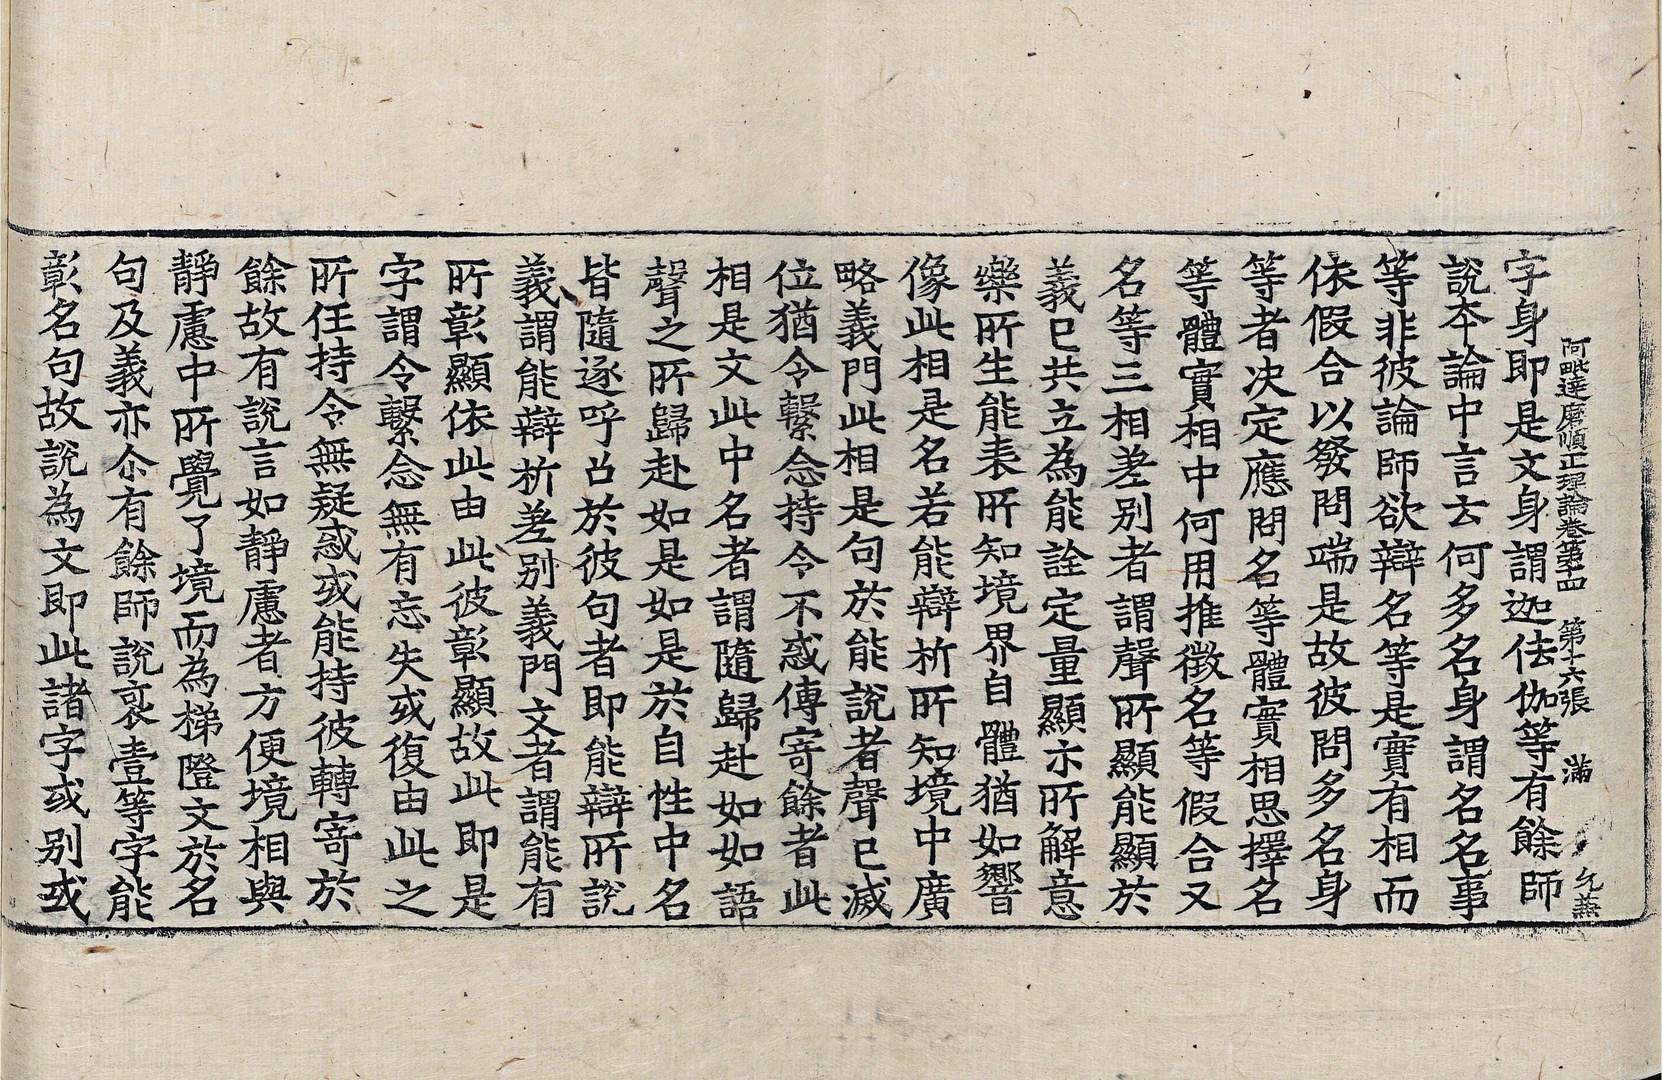 阿毗達磨順正理論卷第十四 第十六張 滿 允蕪
字身即是文身謂迦佉伽等有餘師
說本論中言云何多名身謂名名事
等非彼論師欲辯名等是實有相而
依假合以發問端是故彼問多名身
等者决定應問名等體實相思擇名
等體實相中何用推徵名等假合又
名等三相差别者謂聲所顯能顯於
義已共立為能詮定量顯示所解意
樂所生能表所知境界自體猶如響
像此相是名若能辯析所知境中廣
略義門此相是句於能說者聲已滅
位猶令繫念持令不惑傳寄餘者此
相是文此中名者謂隨歸赴如如語
聲之所歸赴如是如是於自性中名
皆隨逐呼召於彼句者即能辯所說
義謂能辯析差别義門文者謂能有
所彰顯依此由此彼彰顯故此即是
字謂令繫念無有忘失或復由此之
所任持令無疑惑或能持彼轉寄於
餘故有說言如靜慮者方便境相與
靜慮中所覺了境而為梯隥文於名
句及義亦尒有餘師說裒壹等字能
彰名句故說為文即此諸字或别或